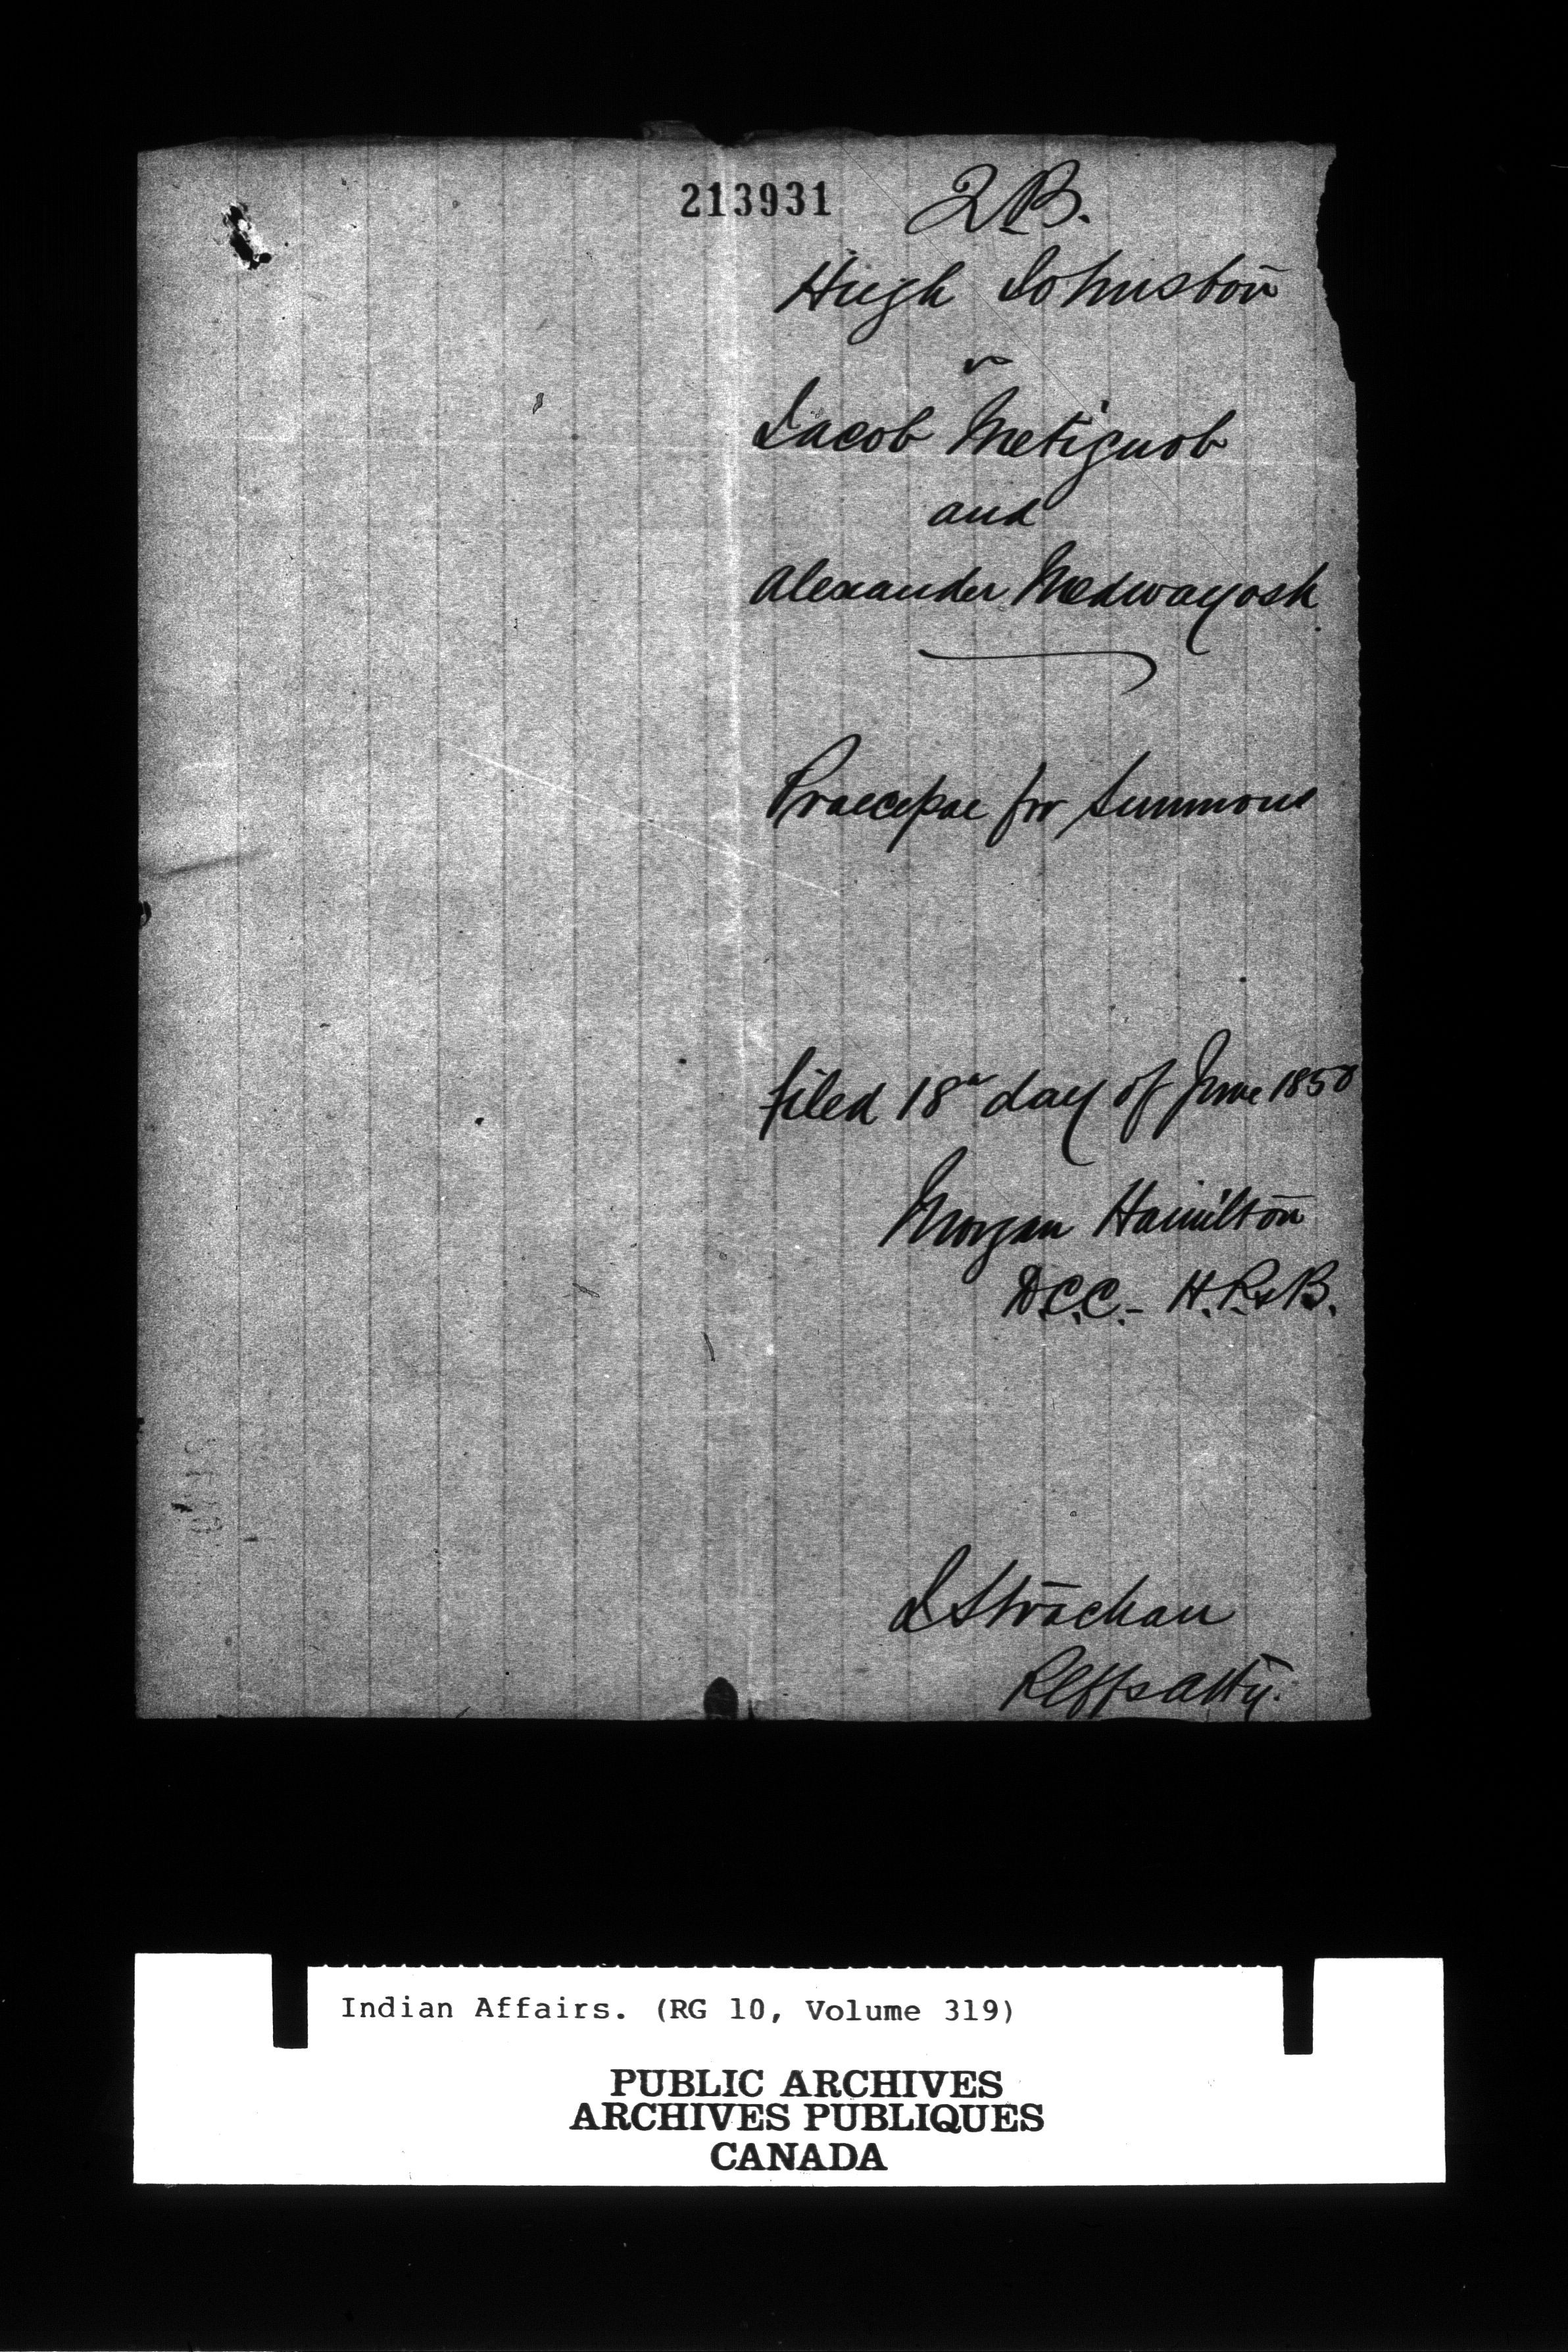 213931
Q.B.
Hugh Johnston
vs
Jacob Metignob
and
Alexander Medwayosh
Praecepae for Summons
filed 18th day of June 1850
Morgan Hamilton
D.C.C. - H. P. & B.
J Strachan
Plffs atty.
Indian Affairs. (RG 10, Volume 319)
PUBLIC ARCHIVES
ARCHIVES PUBLIQUES
CANADA